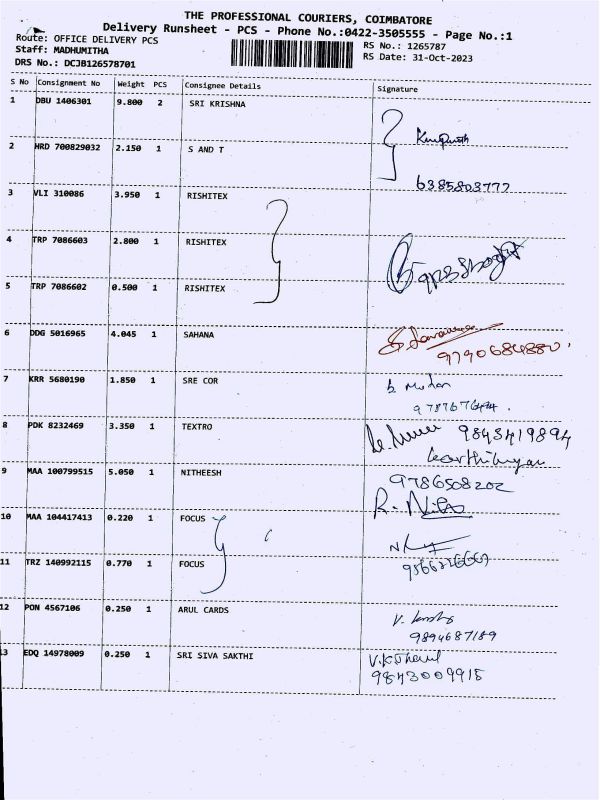 THE PROFESSIONAL COURIERS, COIMBATORE
Delivery Runsheet - PCS - Phone No.:0422-3505555 - Page No.:1
Route: OFFICE DELIVERY PCS
RS No.: 1265787
Staff: MADHUMITHA
RS Date: 31-Oct-2023
DRS No.: DCJB126578701
S No Consignment No Weight PCS Consignee Details Signature
1 DBU 1406301 9.800 2 SRI KRISHNA
2 HRD 700829032 2.150 1 S AND T
6385803777
3 VLI 310086 3.950 1 RISHITEX
4 TRP 7086603 2.800 1 RISHITEX
5 TRP 7086602 0.500 1 RISHITEX
6 DDG 5016965 4.045 1 SAHANA
9790684880
7 KRR 5680190 1.850 1 SRE COR
8 PDK 8232469 3.350 1 TEXTRO 9843419894
9 MAA 100799515 5.050 1 NITHEESH
9786508202
10 MAA 104417413 0.220 1 FOCUS
11 TRZ 140992115 0.770 1 FOCUS
12 PON 4567106 0.250 1 ARUL CARDS
9894687189
13 EDQ 14978009 0.250 1 SRI SIVA SAKTHI
9843009915